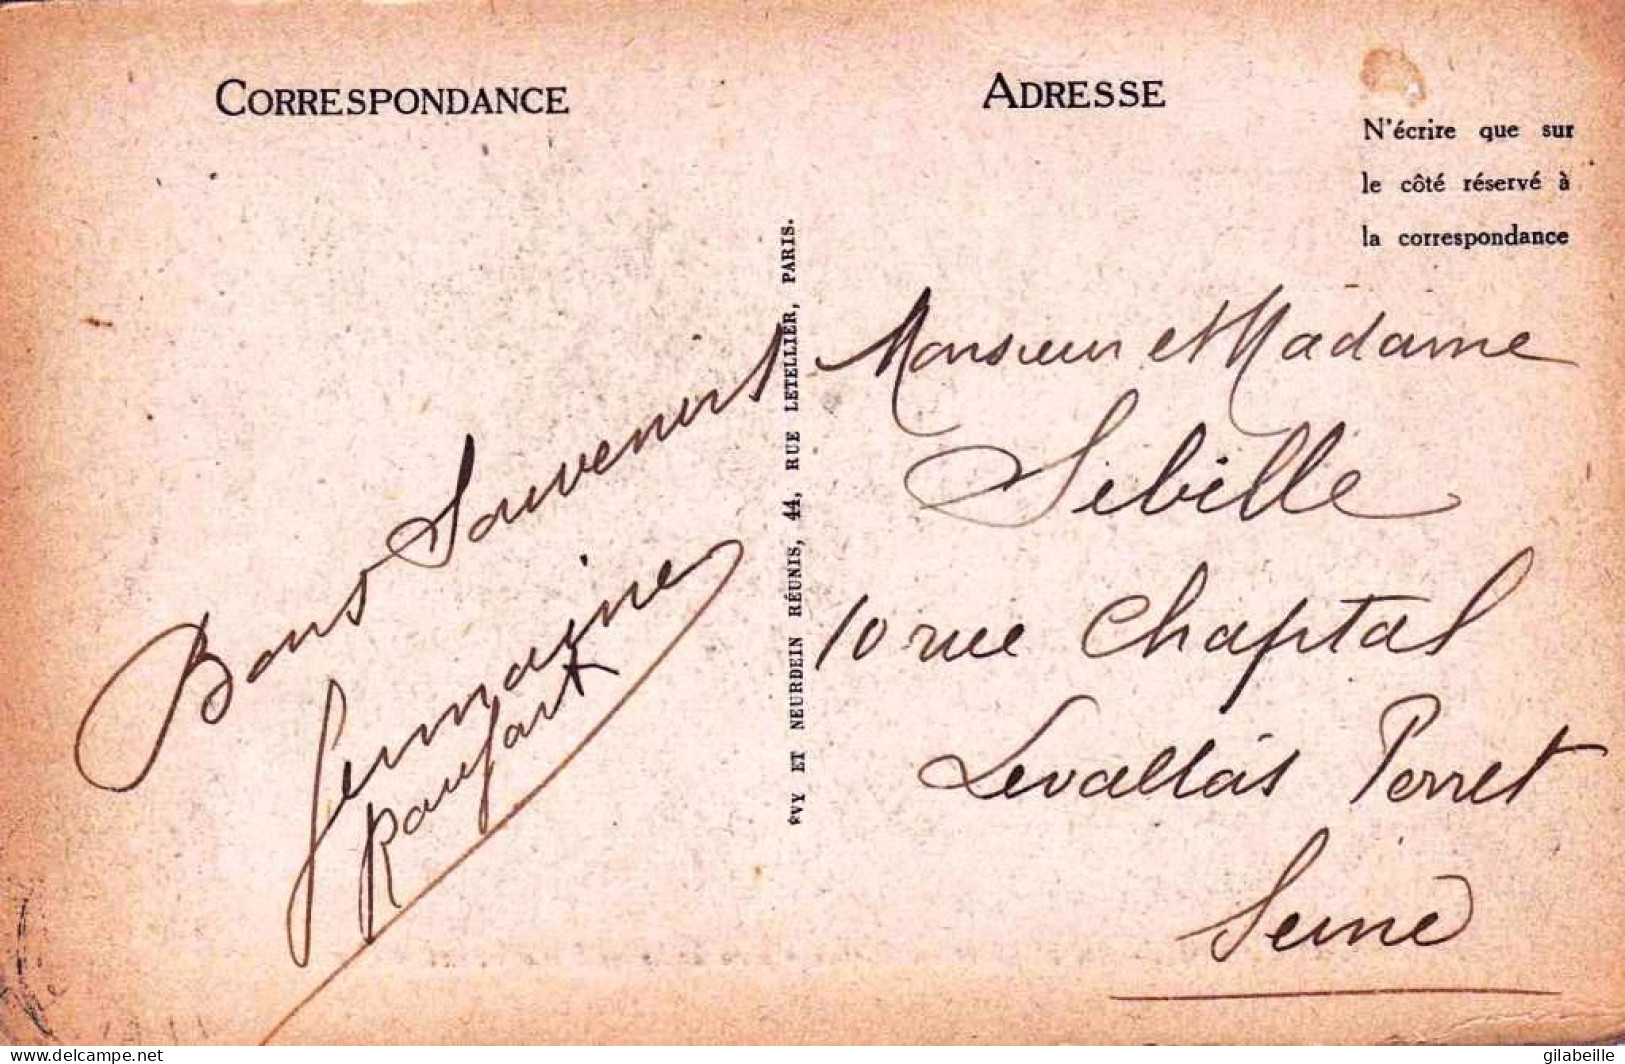 CORRESPONDANCE
Bons Souvenirs
Germaine
ÉVY ET NEURDEIN RÉUNIS, 44, RUE LETELLIER, PARIS.
ADRESSE
N'écrire que sur
le côté réservé à
la correspondance
Monsieur et Madame
Sibille
10 rue Chaptal
Levallois Perret
Seine
delcampe.net
gilabeille